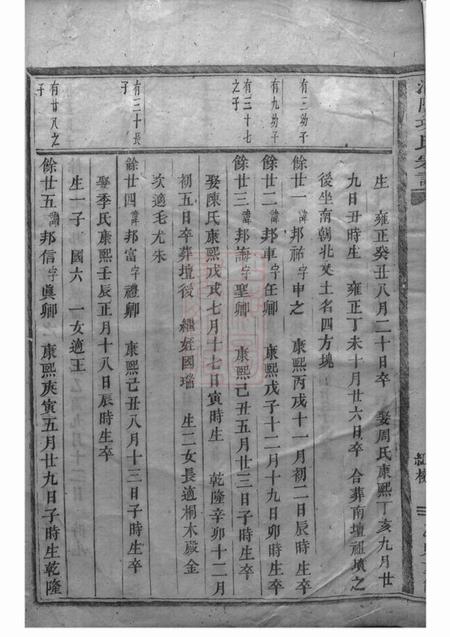 生 雍正癸丑八月二十日卒 娶周氏康熙丁亥九月廿
九日丑時生 雍正丁未十月廿六日卒 合葬南壇祖墳之
後坐南朝北父土名四方塊
有三幼子
餘廿一 諱邦祐字申之 康熙丙戌十一月初二日辰時生卒
有九幼子
餘廿二 諱邦車字任卿 康熙戊子十二月十九日卯時生卒
有三十七之子
餘廿三 諱邦誨字聖卿 康熙己丑五月廿三日子時生卒
娶陳氏康熙戊戌七月十七日寅時生 乾隆辛卯十二月
初五日卒葬壇後 繼姪國瑞 生二女長適桐木嚴金
次適毛尤朱
有三十長子
餘廿四 諱邦富字禮卿 康熙己丑八月十三日子時生卒
娶季氏康熙壬辰正月十八日辰時生卒
生一子 國六 一女適王
有廿八之子
餘廿五 諱邦信字奠卿 康熙庚寅五月廿九日子時生乾隆